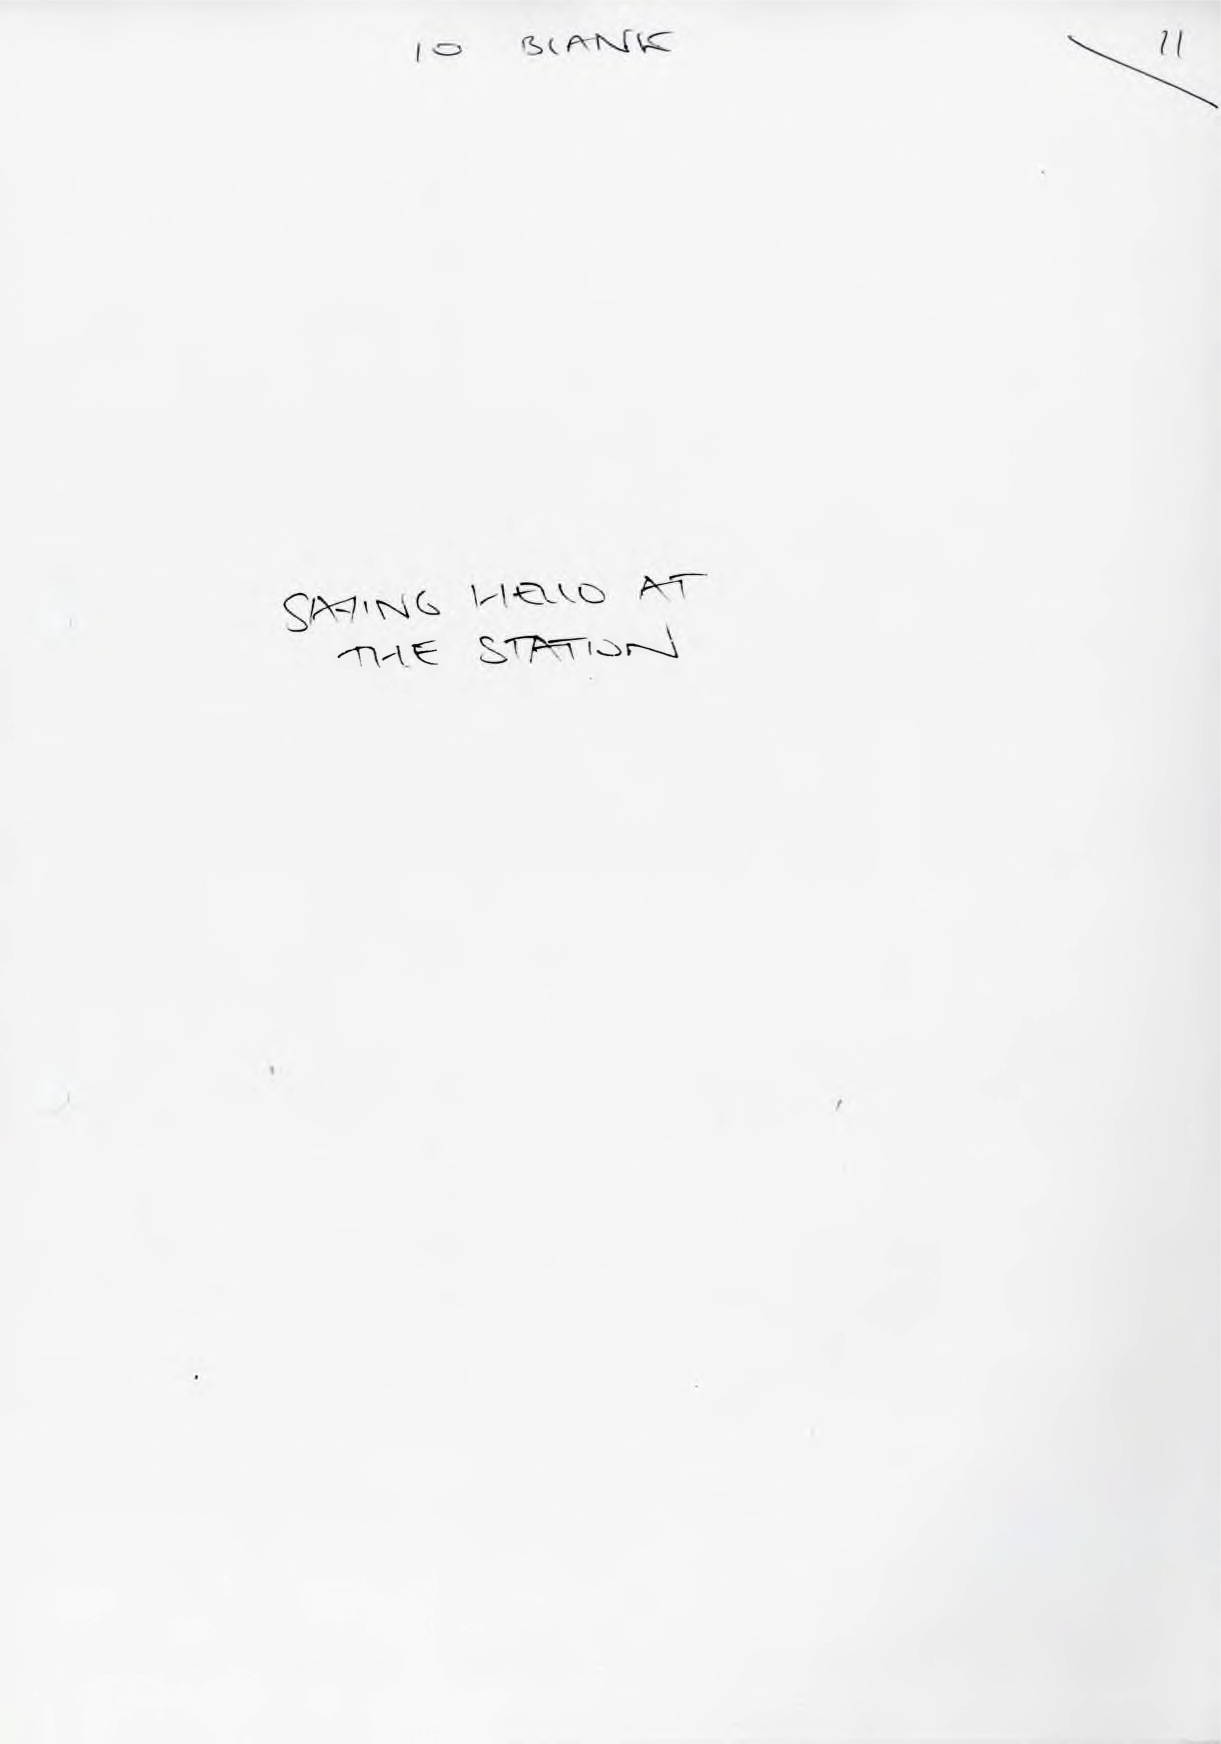 10 BLANK
11
SAYING HELLO AT
THE STATION